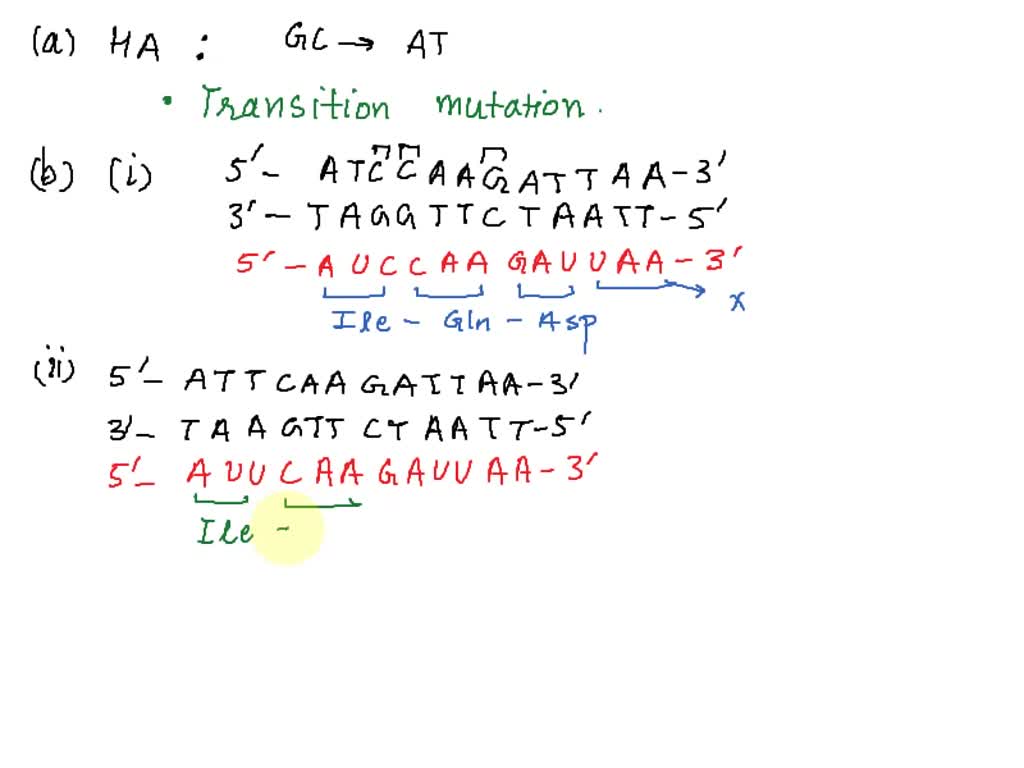 (a) HA : GC → AT
• Transition mutation.
(b) (i) 5'- ATCCAAGATTAA-3'
3'- TAGGTTCTAATT-5'
5'- AUCCAAGAUUAA-3'
Ile - Gln - Asp x
(ii) 5'- ATTCAAGATTAA-3'
3'- TAAGTTCTAATT-5'
5'- AUUCAAGAUUAA-3'
Ile -